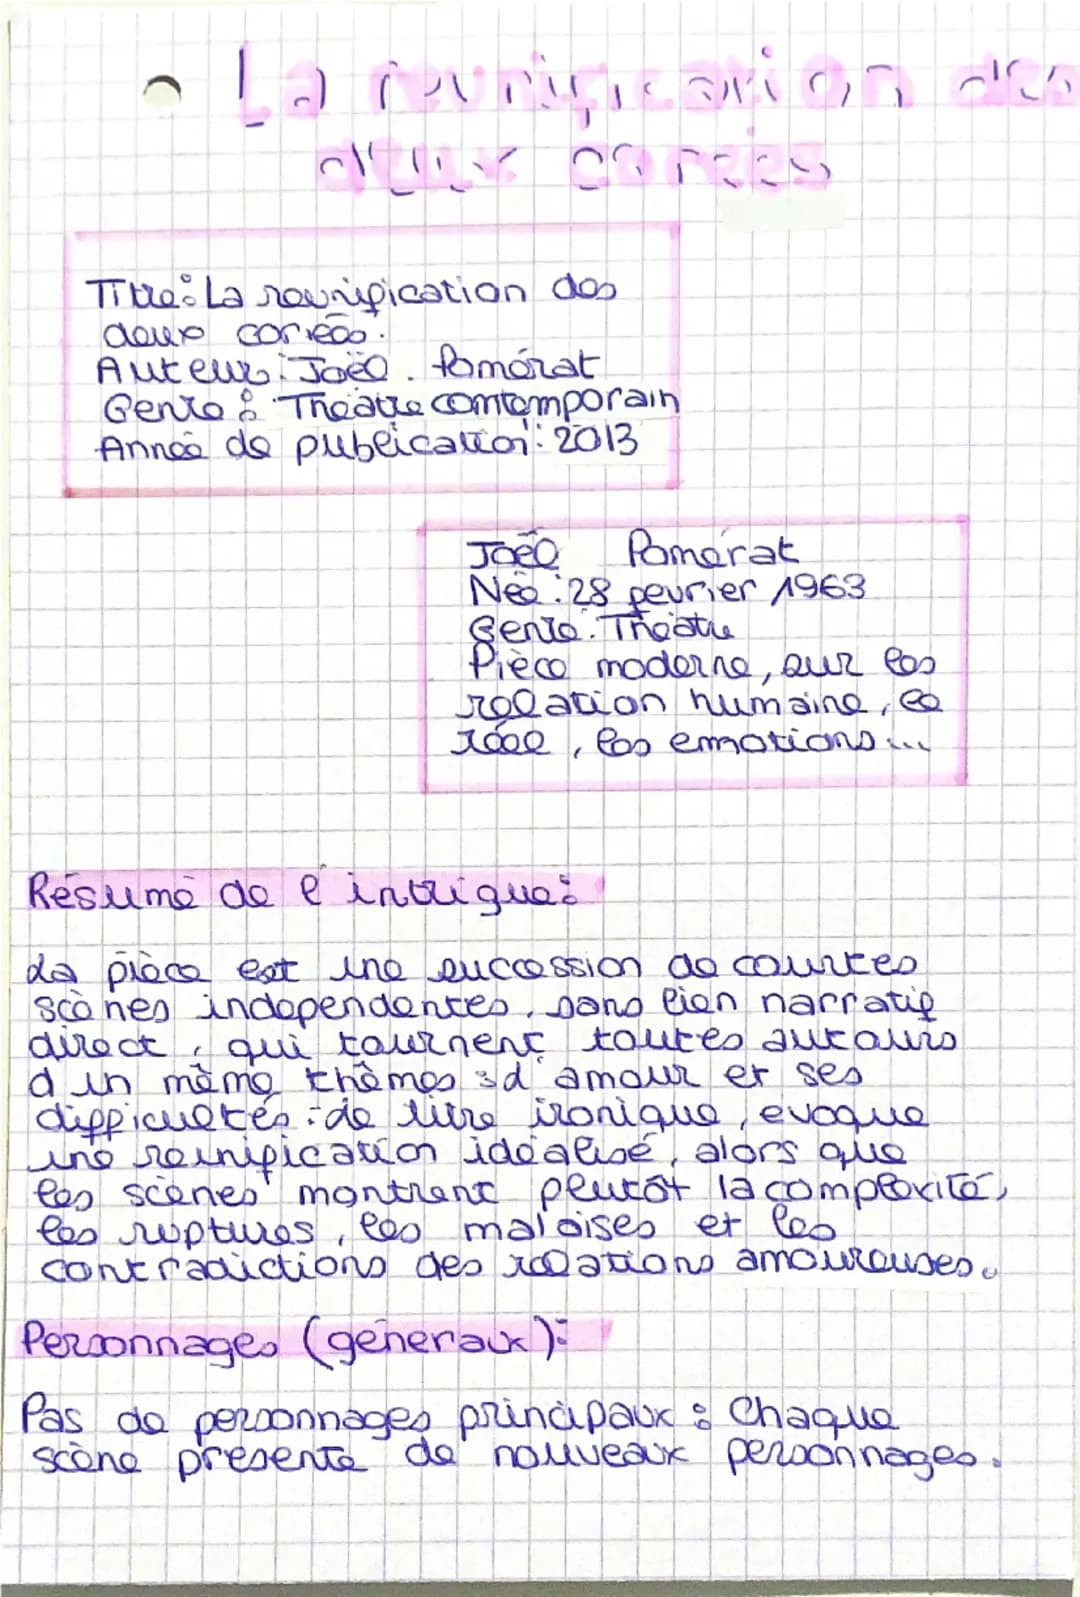 La réunification des
deux corées
Titre: La réunification des
deux corées.
Auteur: Joël. Pomérat
Genre: Théâtre comtemporain
Année de publication: 2013
Joël Pomerat
Née: 28 fevrier 1963
Genre: Théâtre
Pièce moderne, sur les
relation humaine, le
réel, les emotions...
Résumé de l'intrigue:
La pièce est une succession de courtes
scènes independentes, sans lien narratif
direct, qui tournent toutes autours
d'un même thèmes: d'amour et ses
difficultés: de titre ironique, evoque
une reinification idéalisé, alors que
les scènes montrent plutôt la complexité,
les ruptures, les malaises et les
contradictions des relations amoureuses.
Personnages (généraux):
Pas de personnages principaux: Chaque
scène présente de nouveaux personnages.